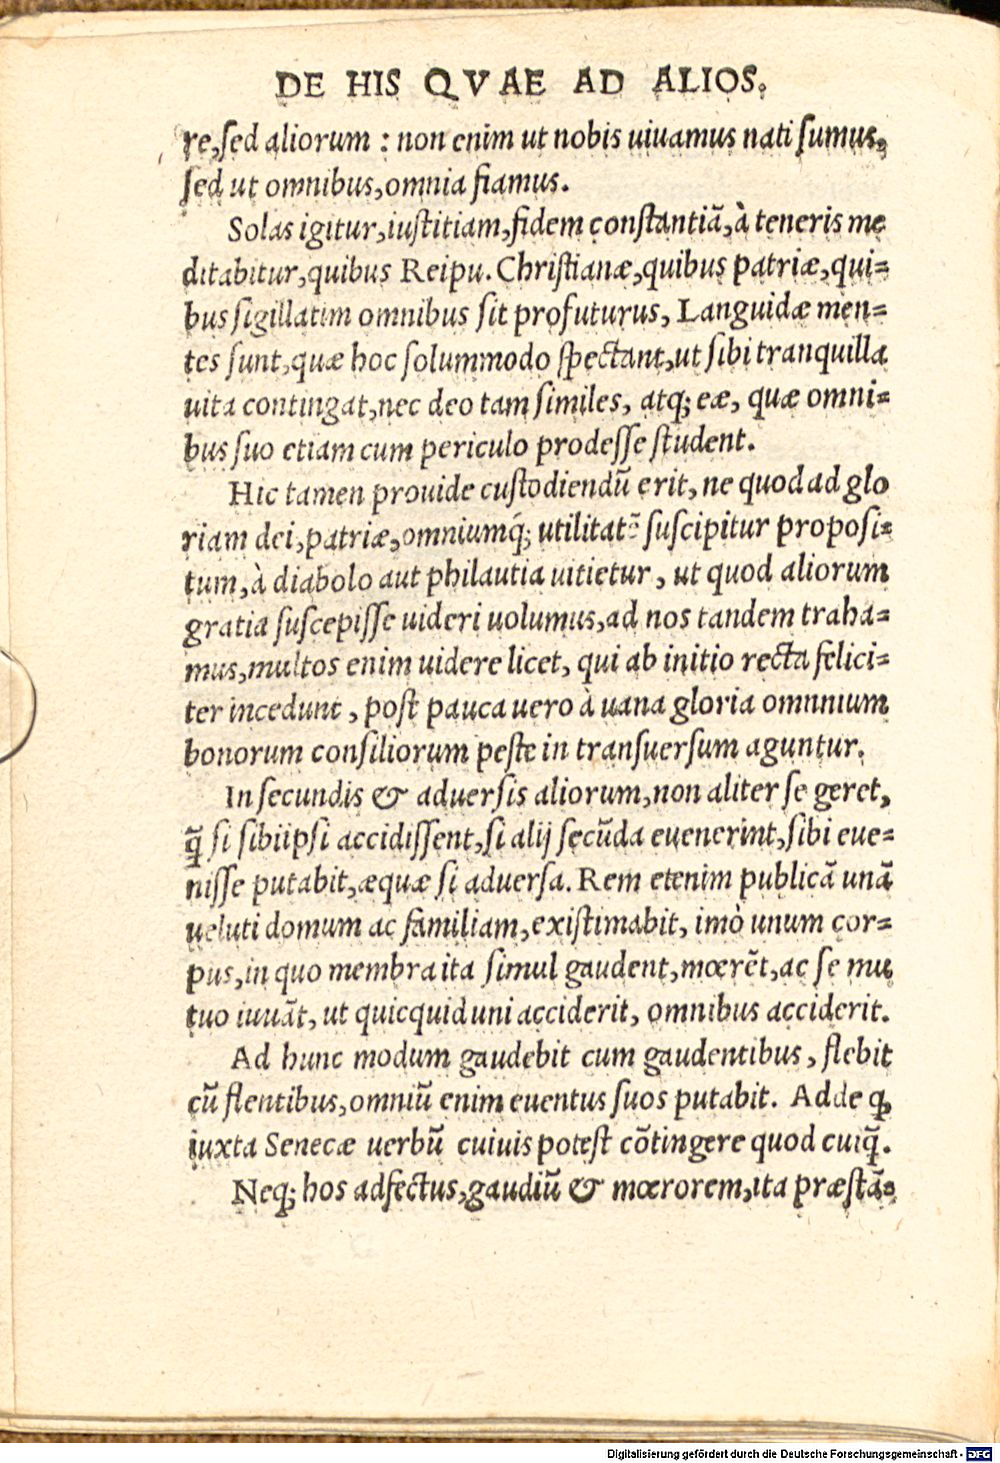 DE HIS QVAE AD ALIOS.
re,ſed aliorum : non enim ut nobis uiuamus nati ſumus,
ſed ut omnibus,omnia fiamus.
Solas igitur,iuſtitiam,fidem conſtantiā,à teneris me
ditabitur,quibus Reipu. Chriſtianæ,quibus patriæ,qui=
bus ſigillatim omnibus ſit profuturus, Languidæ men=
tes ſunt,quæ hoc ſolummodo ſpectant,ut ſibi tranquilla
uita contingat,nec deo tam ſimiles, atq; eæ, quæ omni=
bus ſuo etiam cum periculo prodeſſe ſtudent.
Hic tamen prouide cuſtodiendū erit, ne quod ad glo
riam dei,patriæ,omniumq́; utilitatē ſuſcipitur propoſi=
tum,à diabolo aut philautia uitietur, ut quod aliorum
gratia ſuſcepiſſe uideri uolumus,ad nos tandem traha=
mus,multos enim uidere licet, qui ab initio recta felici=
ter incedunt, poſt pauca uero à uana gloria omnnium
bonorum conſiliorum peſte in transuerſum aguntur.
In ſecundis & aduerſis aliorum,non aliter ſe geret,
q̄ ſi ſibiipſi accidiſſent,ſi alij ſecūda euenerint,ſibi eue=
niſſe putabit,æquæ ſi aduerſa. Rem etenim publicā unā
ueluti domum ac familiam,exiſtimabit, imò unum cor=
pus,in quo membra ita ſimul gaudent,mœrēt,ac ſe mu
tuo iuuāt, ut quicquid uni acciderit, omnibus acciderit.
Ad hunc modum gaudebit cum gaudentibus, flebit
cū flentibus,omniū enim euentus ſuos putabit. Adde ꝙ
iuxta Senecæ uerbū cuiuis poteſt cōtingere quod cuiq̄.
Neq; hos adfectus,gaudiū & mœrorem,ita præſtā=
Digitalisierung gefördert durch die Deutsche Forschungsgemeinschaft - DFG